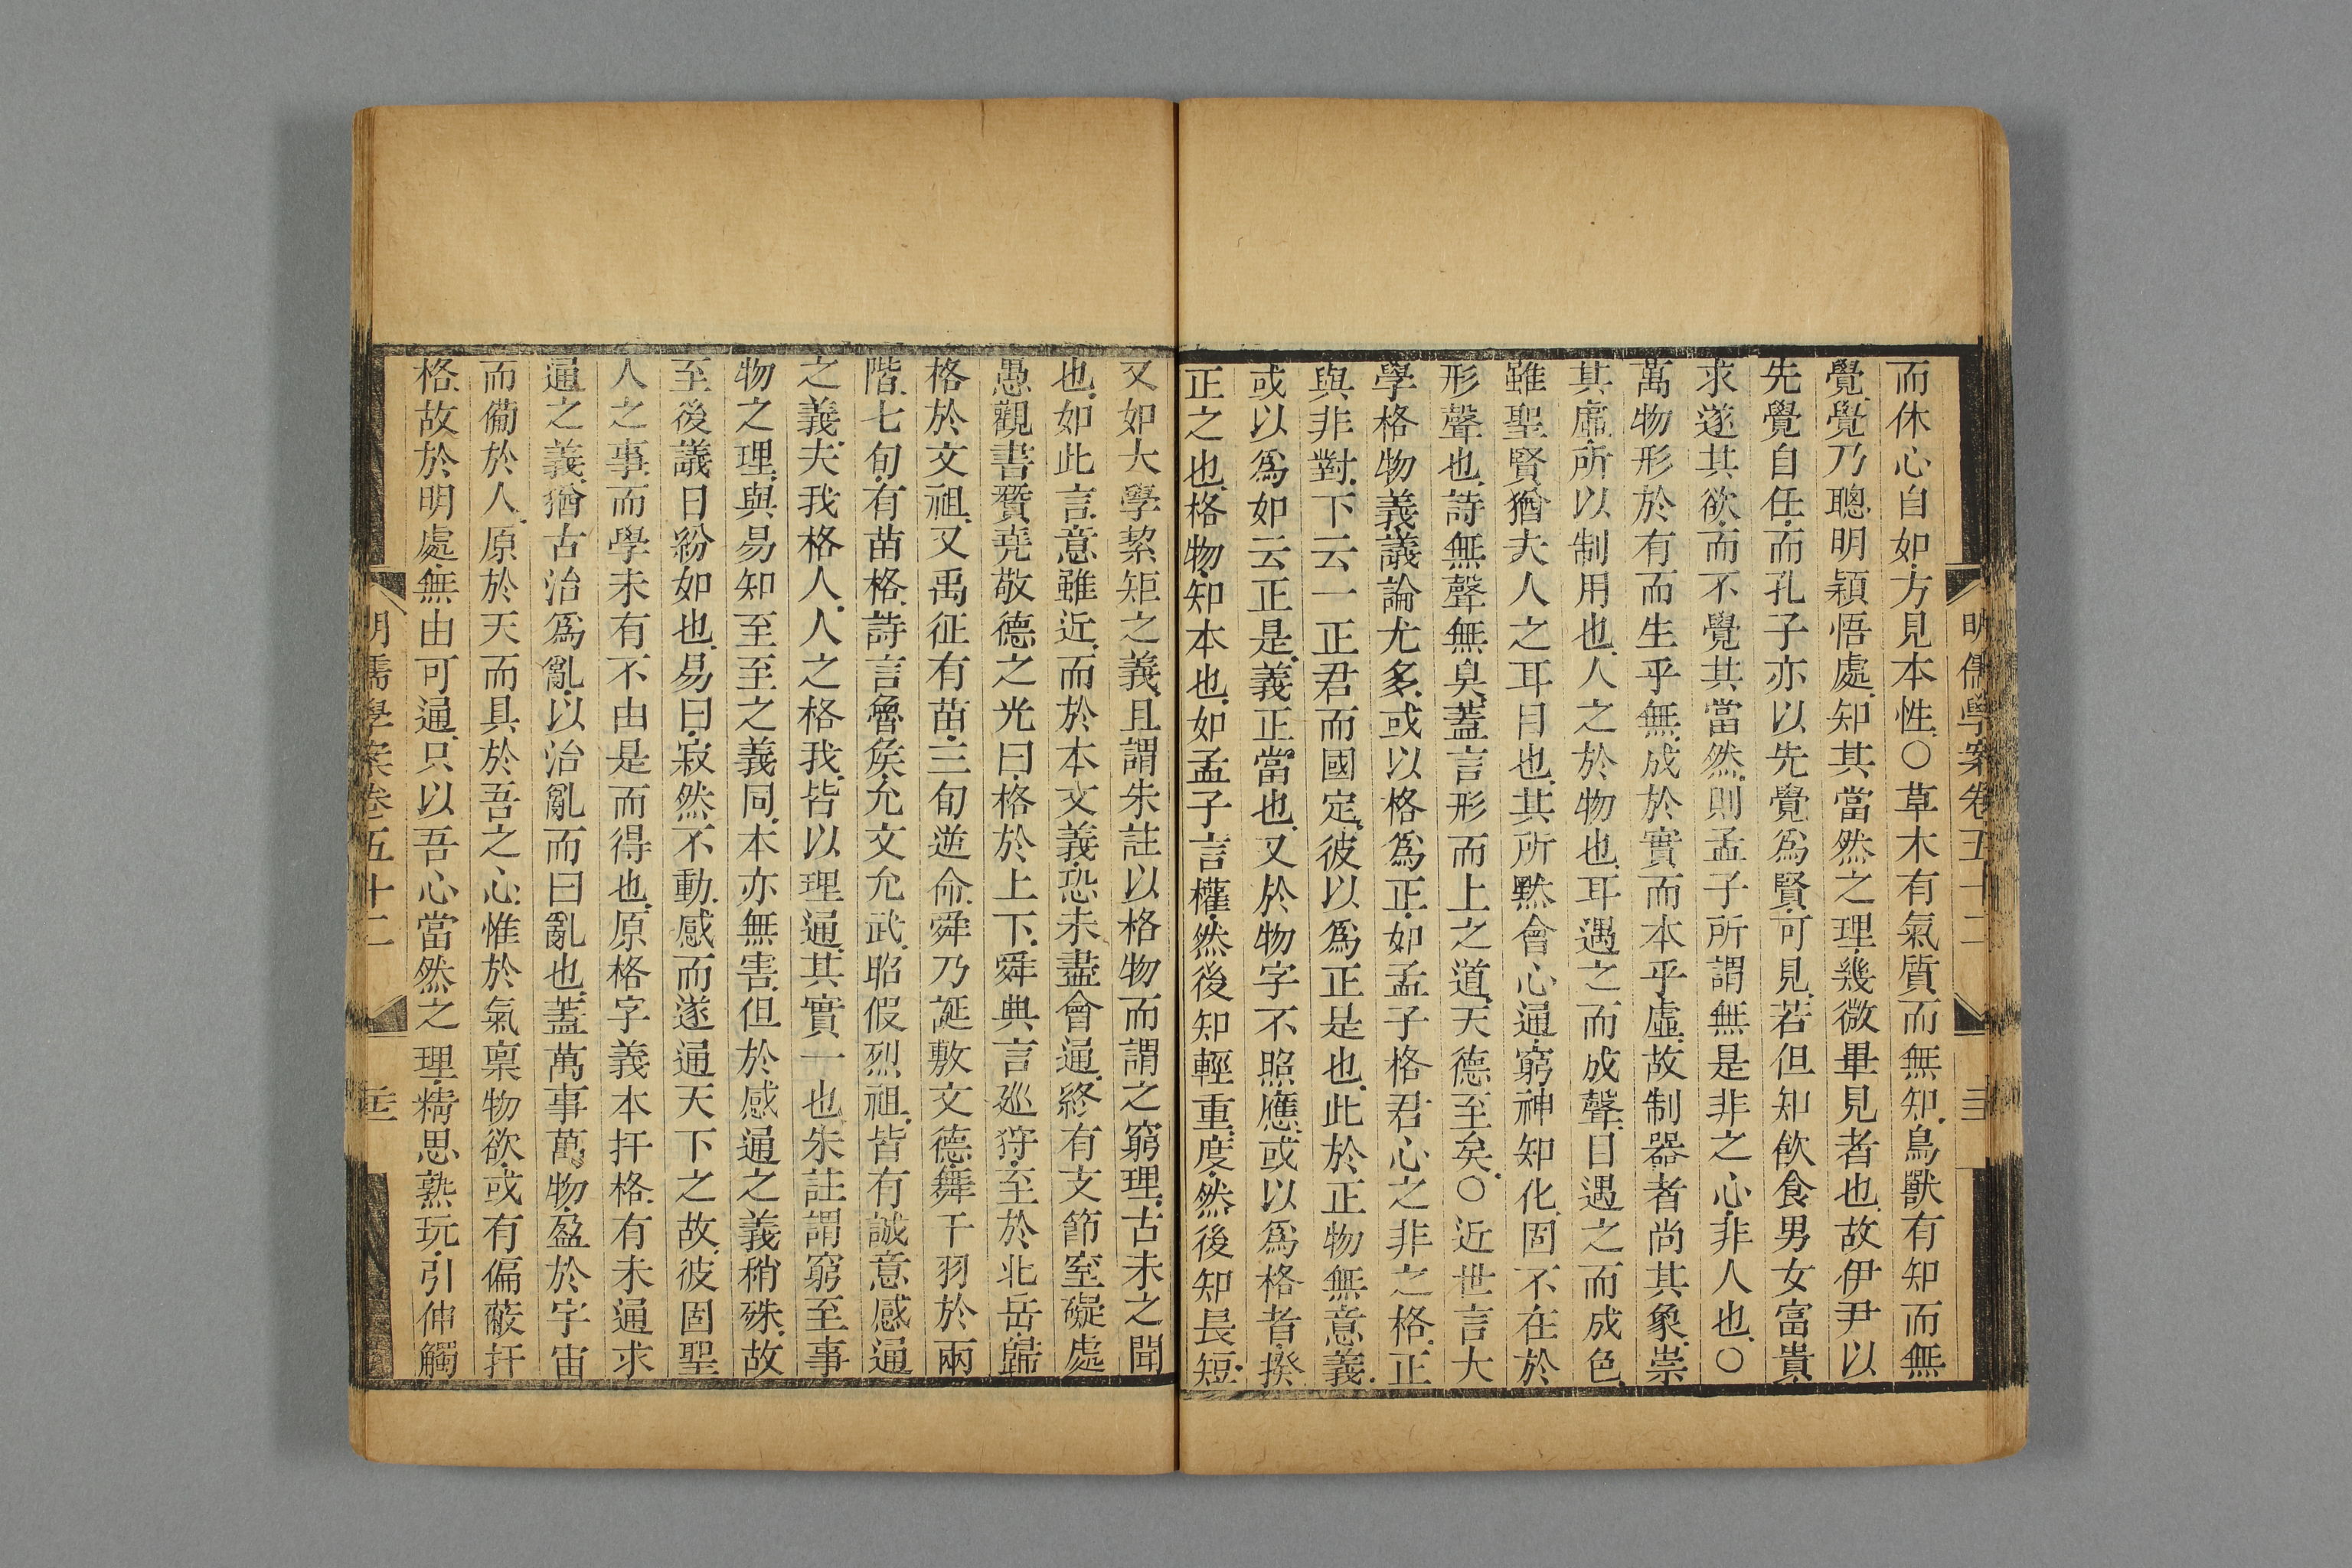 明儒學案卷五十二
而休心自如方見本性○草木有氣質而無知鳥獸有知而無
覺覺乃聰明穎悟處知其當然之理幾微畢見者也故伊尹以
先覺自任而孔子亦以先覺爲賢可見若但知飲食男女富貴
求遂其欲而不覺其當然則孟子所謂無是非之心非人也○
萬物形於有而生乎無成於實而本乎虛故制器者尚其象崇
其虛所以制用也人之於物也耳遇之而成聲目遇之而成色
雖聖賢猶夫人之耳目也其所黙會心通窮神知化固不在於
形聲也詩無聲無臭蓋言形而上之道天德至矣○近世言大
學格物義議論尤多或以格爲正如孟子格君心之非之格正
與非對下云一正君而國定彼以爲正是也此於正物無意義
或以爲如云正是義正當也又於物字不照應或以爲格者揆
正之也格物知本也如孟子言權然後知輕重度然後知長短
又如大學絜矩之義且謂朱註以格物而謂之窮理古未之聞
也如此言意雖近而於本文義恐未盡會通終有支節窒礙處
愚觀書贊堯敬德之光曰格於上下舜典言巡狩至於北岳歸
格於文祖又禹征有苗三旬逆命舜乃誕敷文德舞干羽於兩
階七旬有苗格詩言魯矦允文允武昭假烈祖皆有誠意感通
之義夫我格人人之格我皆以理通其實一也朱註謂窮至事
物之理與易知至至之義同本亦無害但於感通之義稍殊故
至後議日紛如也易曰寂然不動感而遂通天下之故彼固聖
人之事而學未有不由是而得也原格字義本扞格有未通求
通之義猶古治爲亂以治亂而曰亂也蓋萬事萬物盈於宇宙
而備於人原於天而具於吾之心惟於氣稟物欲或有偏蔽扞
格故於明處無由可通只以吾心當然之理精思熟玩引伸觸
明儒學案卷五十二